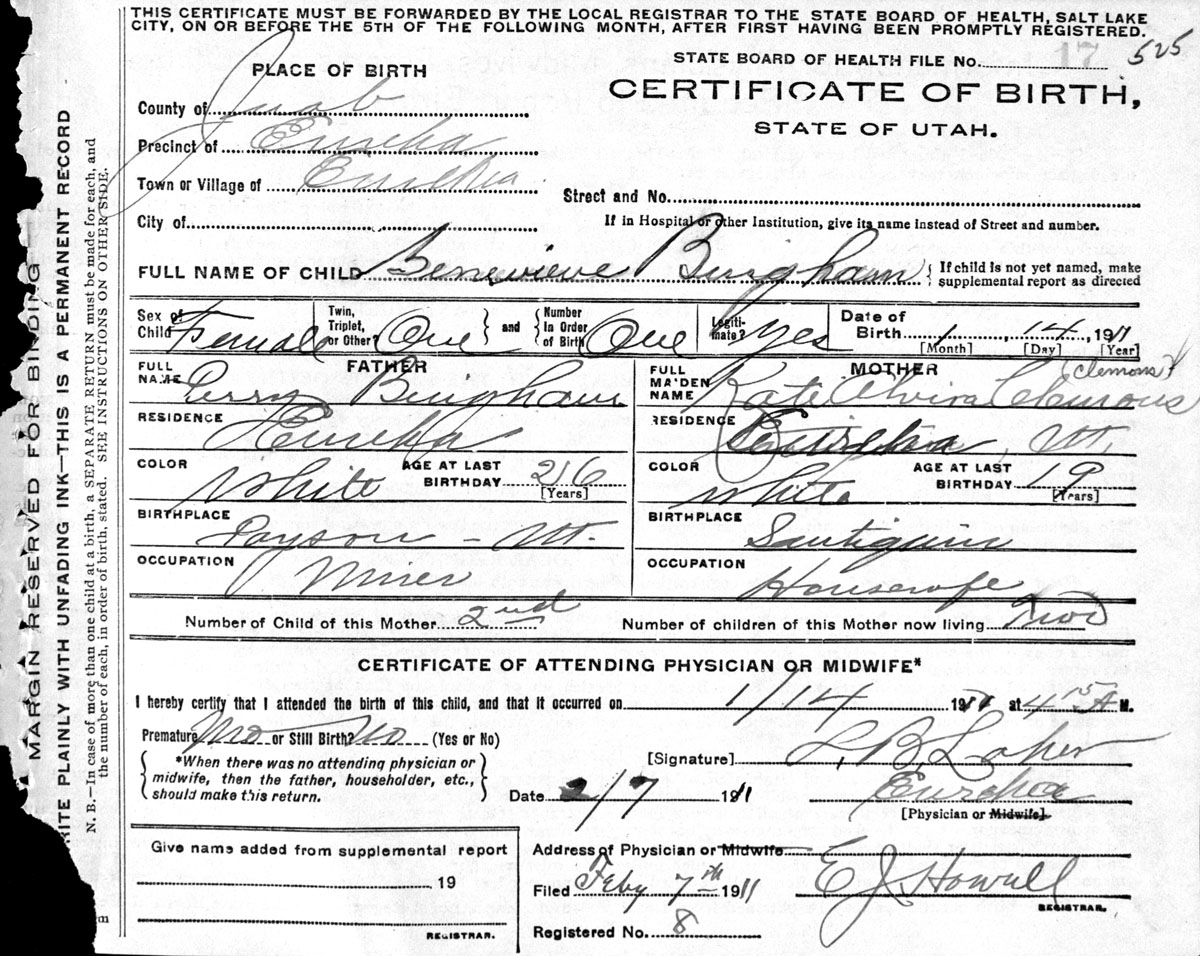 THIS CERTIFICATE MUST BE FORWARDED BY THE LOCAL REGISTRAR TO THE STATE BOARD OF HEALTH, SALT LAKE
CITY, ON OR BEFORE THE 5TH OF THE FOLLOWING MONTH, AFTER FIRST HAVING BEEN PROMPTLY REGISTERED.
MARGIN RESERVED FOR BINDING
RITE PLAINLY WITH UNFADING INK—THIS IS A PERMANENT RECORD
N. B.—In case of more than one child at a birth, a SEPARATE RETURN must be made for each, and
the number of each, in order of birth, stated. SEE INSTRUCTIONS ON OTHER SIDE.
STATE BOARD OF HEALTH FILE No. 17 525
PLACE OF BIRTH
CERTIFICATE OF BIRTH,
STATE OF UTAH.
County of Juab
Precinct of Eureka
Town or Village of Eureka
Street and No.
City of
If in Hospital or other Institution, give its name instead of Street and number.
FULL NAME OF CHILD Genevieve Bingham { If child is not yet named, make
supplemental report as directed
Sex of Child Female Twin, Triplet, or Other? One } and { Number In Order of Birth One Legiti-mate? Yes Date of Birth 1, 14, 1911
[Month] [Day] [Year]
FATHER MOTHER (Clemons)
FULL NAME Perry Bingham FULL MAIDEN NAME Kate Alvira Clemons
RESIDENCE Eureka RESIDENCE Eureka, Ut.
COLOR White AGE AT LAST BIRTHDAY 26 [Years] COLOR White AGE AT LAST BIRTHDAY 19 [Years]
BIRTHPLACE Payson - Ut. BIRTHPLACE Santiquin
OCCUPATION Miner OCCUPATION Housewife
Number of Child of this Mother 2nd Number of children of this Mother now living Two
CERTIFICATE OF ATTENDING PHYSICIAN OR MIDWIFE*
I hereby certify that I attended the birth of this child, and that it occurred on 1/14 1911 at 4 15 A M.
Premature No or Still Birth? No (Yes or No)
[Signature]
*When there was no attending physician or
midwife, then the father, householder, etc.,
should make this return.
Date 2/7 1911 Eureka
[Physician or Midwife]
Give name added from supplemental report
19
REGISTRAR.
B
Address of Physician or Midwife
Filed Feby 7th 1911 E J Howell
REGISTRAR.
Registered No. 8